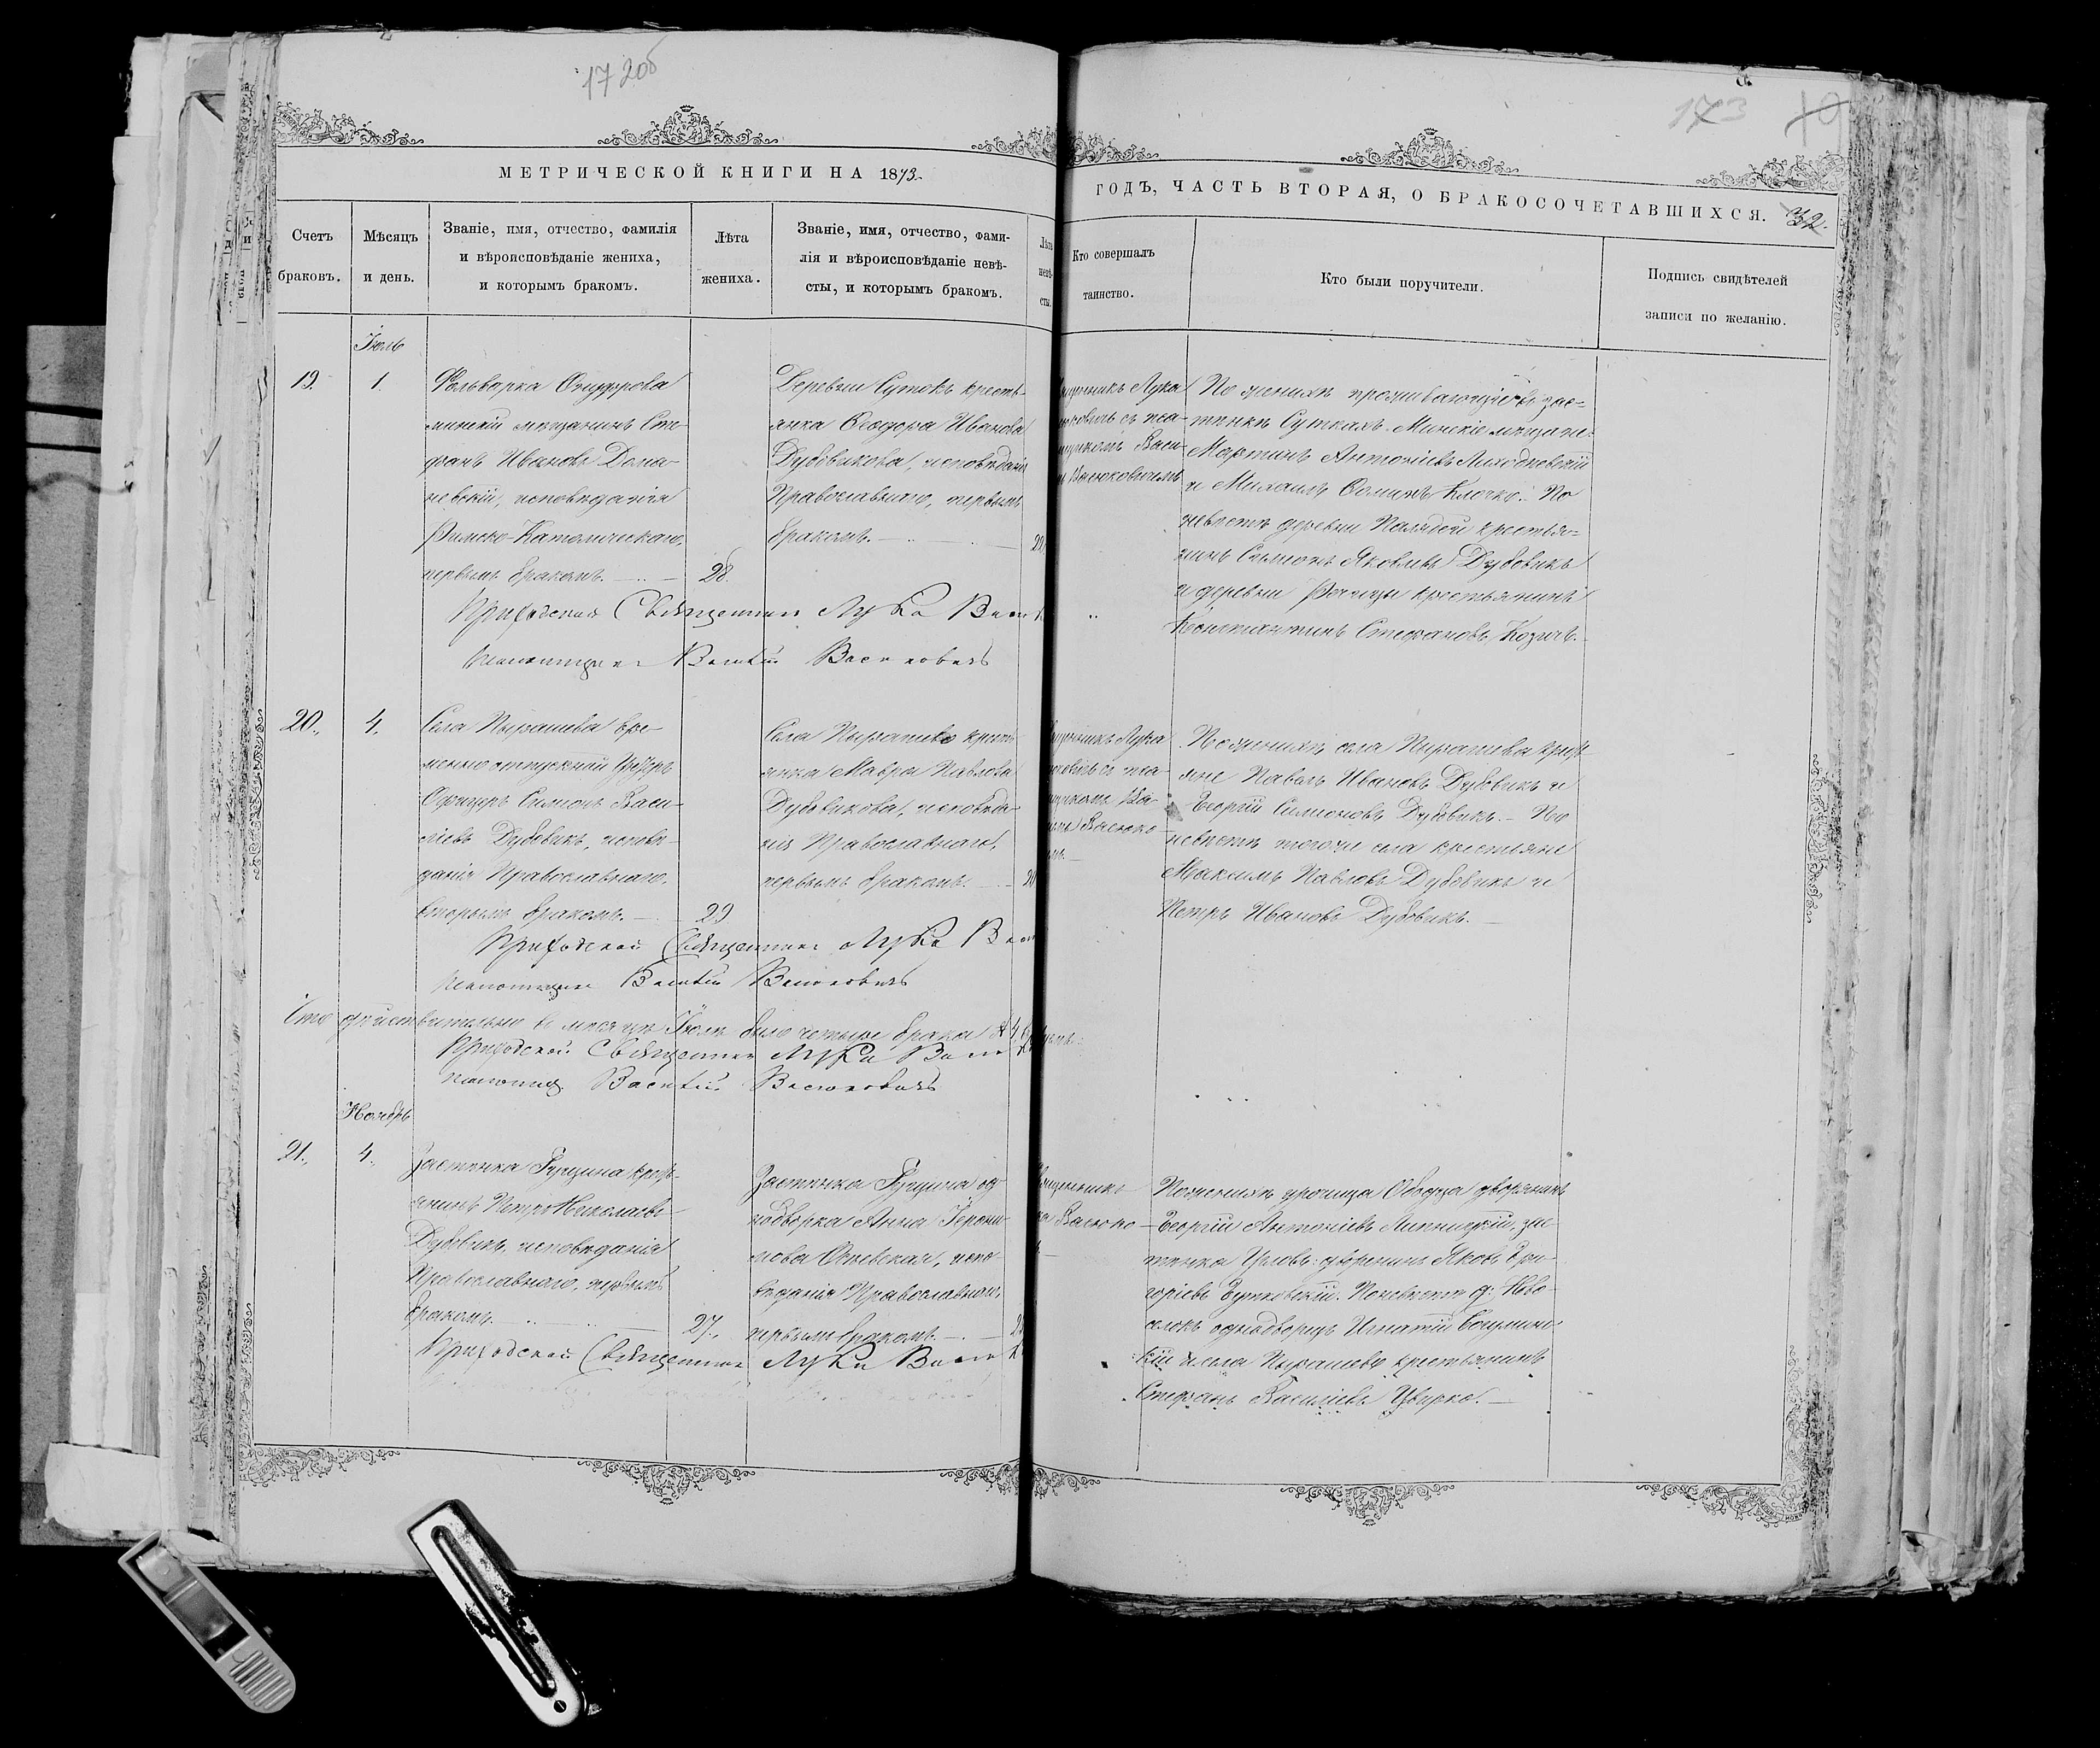 173
МЕТРИЧЕСКОЙ КНИГИ НА 1873
ГОДЪ, ЧАСТЬ ВТОРАЯ, О БРАКОСОЧЕТАВШИХСЯ.
32.
Счетъ
браковъ.
Мѣсяцъ
и день.
Званіе, имя, отчество, фамилія
и вѣроисповѣданіе жениха,
и которымъ бракомъ.
Лѣта
жениха.
Званіе, имя, отчество, фами-
лія и вѣроисповѣданіе невѣ-
сты, и которымъ бракомъ.
Лѣта
невѣ-
сты.
Кто совершалъ
таинство.
Кто были поручители.
Подпись свидѣтелей
записи по желанію.
Іюль
19.
1.
Фольварка
минскій мѣщанинъ Сте-
фанъ Ивановъ Дома-
невскій, исповѣданія
Римско-Католическаго,
первымъ бракомъ.
28.
Деревни Сутокъ кресть-
янка Ѳеодора Иванова
Дубовикова, исповѣданія
Православнаго, первымъ
бракомъ.
22
Лука
съ пса-
Васи-
Васюковичемъ
По женихѣ проживающіе въ зас-
тѣнкѣ Суткахъ Минскіе мѣщане:
Мартинъ Антоніевъ
и Михаилъ Ѳоминъ Клочко. По
невѣстѣ деревни крестья-
нинъ Симонъ Яковлевъ Дубовикъ
и деревни крестьянинъ
Константинъ Стефановъ Козичъ.
Приходскій Священникъ Лука Васю
Псаломщикъ Василій Васюковичъ
20.
4.
Села Пырашева вре-
менно отпускной Унтеръ
Офицеръ Симонъ Васи-
ліевъ Дубовикъ, исповѣ-
данія Православнаго,
вторымъ бракомъ.
29
Села Пырашева кресть-
янка Мавра Павлова
Дубовикова, исповѣда-
нія Православнаго,
первымъ бракомъ.
20
Лука
съ пса-
Ва-
Васюко-
По женихѣ села Пырашева крест
яне Павелъ Ивановъ Дубовикъ и
Георгій Симоновъ Дубовикъ. По
невѣстѣ тогоже села крестьяне
Максимъ Павловъ Дубовикъ и
Петръ Ивановъ Дубовикъ.
Приходской Священникъ Лука Васю
Псаломщикъ Василій Васюковичъ
Что дѣйствительно въ мѣсяцѣ Іюлѣ было четыре брака
Приходской Священникъ Лука Васю
Псаломщ. Василій Васюковичъ
Ноябрь
21.
4.
Застѣнка Гущина крест-
янинъ Петръ Николаевъ
Дубовикъ, исповѣданія
Православнаго, первымъ
бракомъ.
27.
Застѣнка Гущина од-
нодворка Анна Героним-
ова, испо-
вѣданія Православнаго,
первымъ бракомъ.
Васюко-
По женихѣ урочища дворянинъ
Георгій Антоніевъ зас-
тѣнка дворянинъ Яковъ Гри-
горіевъ Бутковскій. По невѣстѣ д: Ново-
селокъ однодворецъ Игнатій
кій и села Пырашева крестьянинъ
Стефанъ Василіевъ Цвирко.
Приходской Священникъ Лука Васю